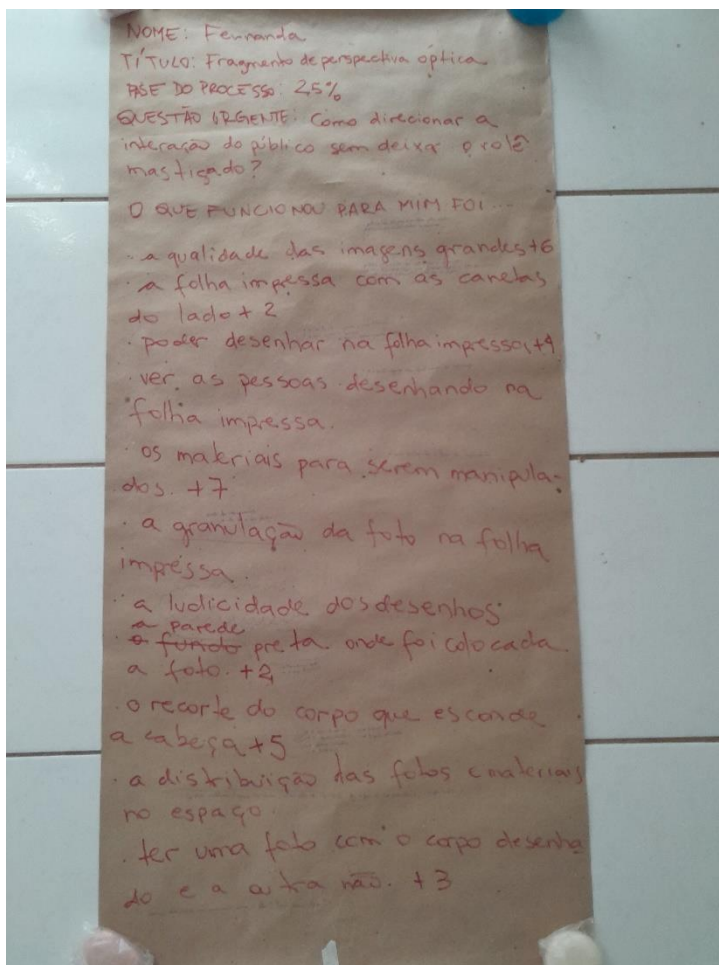 NOME: Fernanda
TÍTULO: Fragmento de perspectiva óptica
FASE DO PROCESSO: 25%
QUESTÃO URGENTE: Como direcionar a
interação do público sem deixar o rolê
mastigado?
O QUE FUNCIONOU PARA MIM FOI...
· a qualidade das imagens grandes +6
· a folha impressa com as canetas
do lado + 2
· poder desenhar na folha impressa +4
· ver as pessoas desenhando na
folha impressa.
· os materiais para serem manipula-
dos. +7
· a granulação da foto na folha
impressa.
· a ludicidade dos desenhos
a parede
· o fundo preta onde foi colocada
a foto. +2
· o recorte do corpo que esconde
a cabeça +5
· a distribuição das fotos e materiais
no espaço.
· ter uma foto com o corpo desenha
do e a outra não. +3